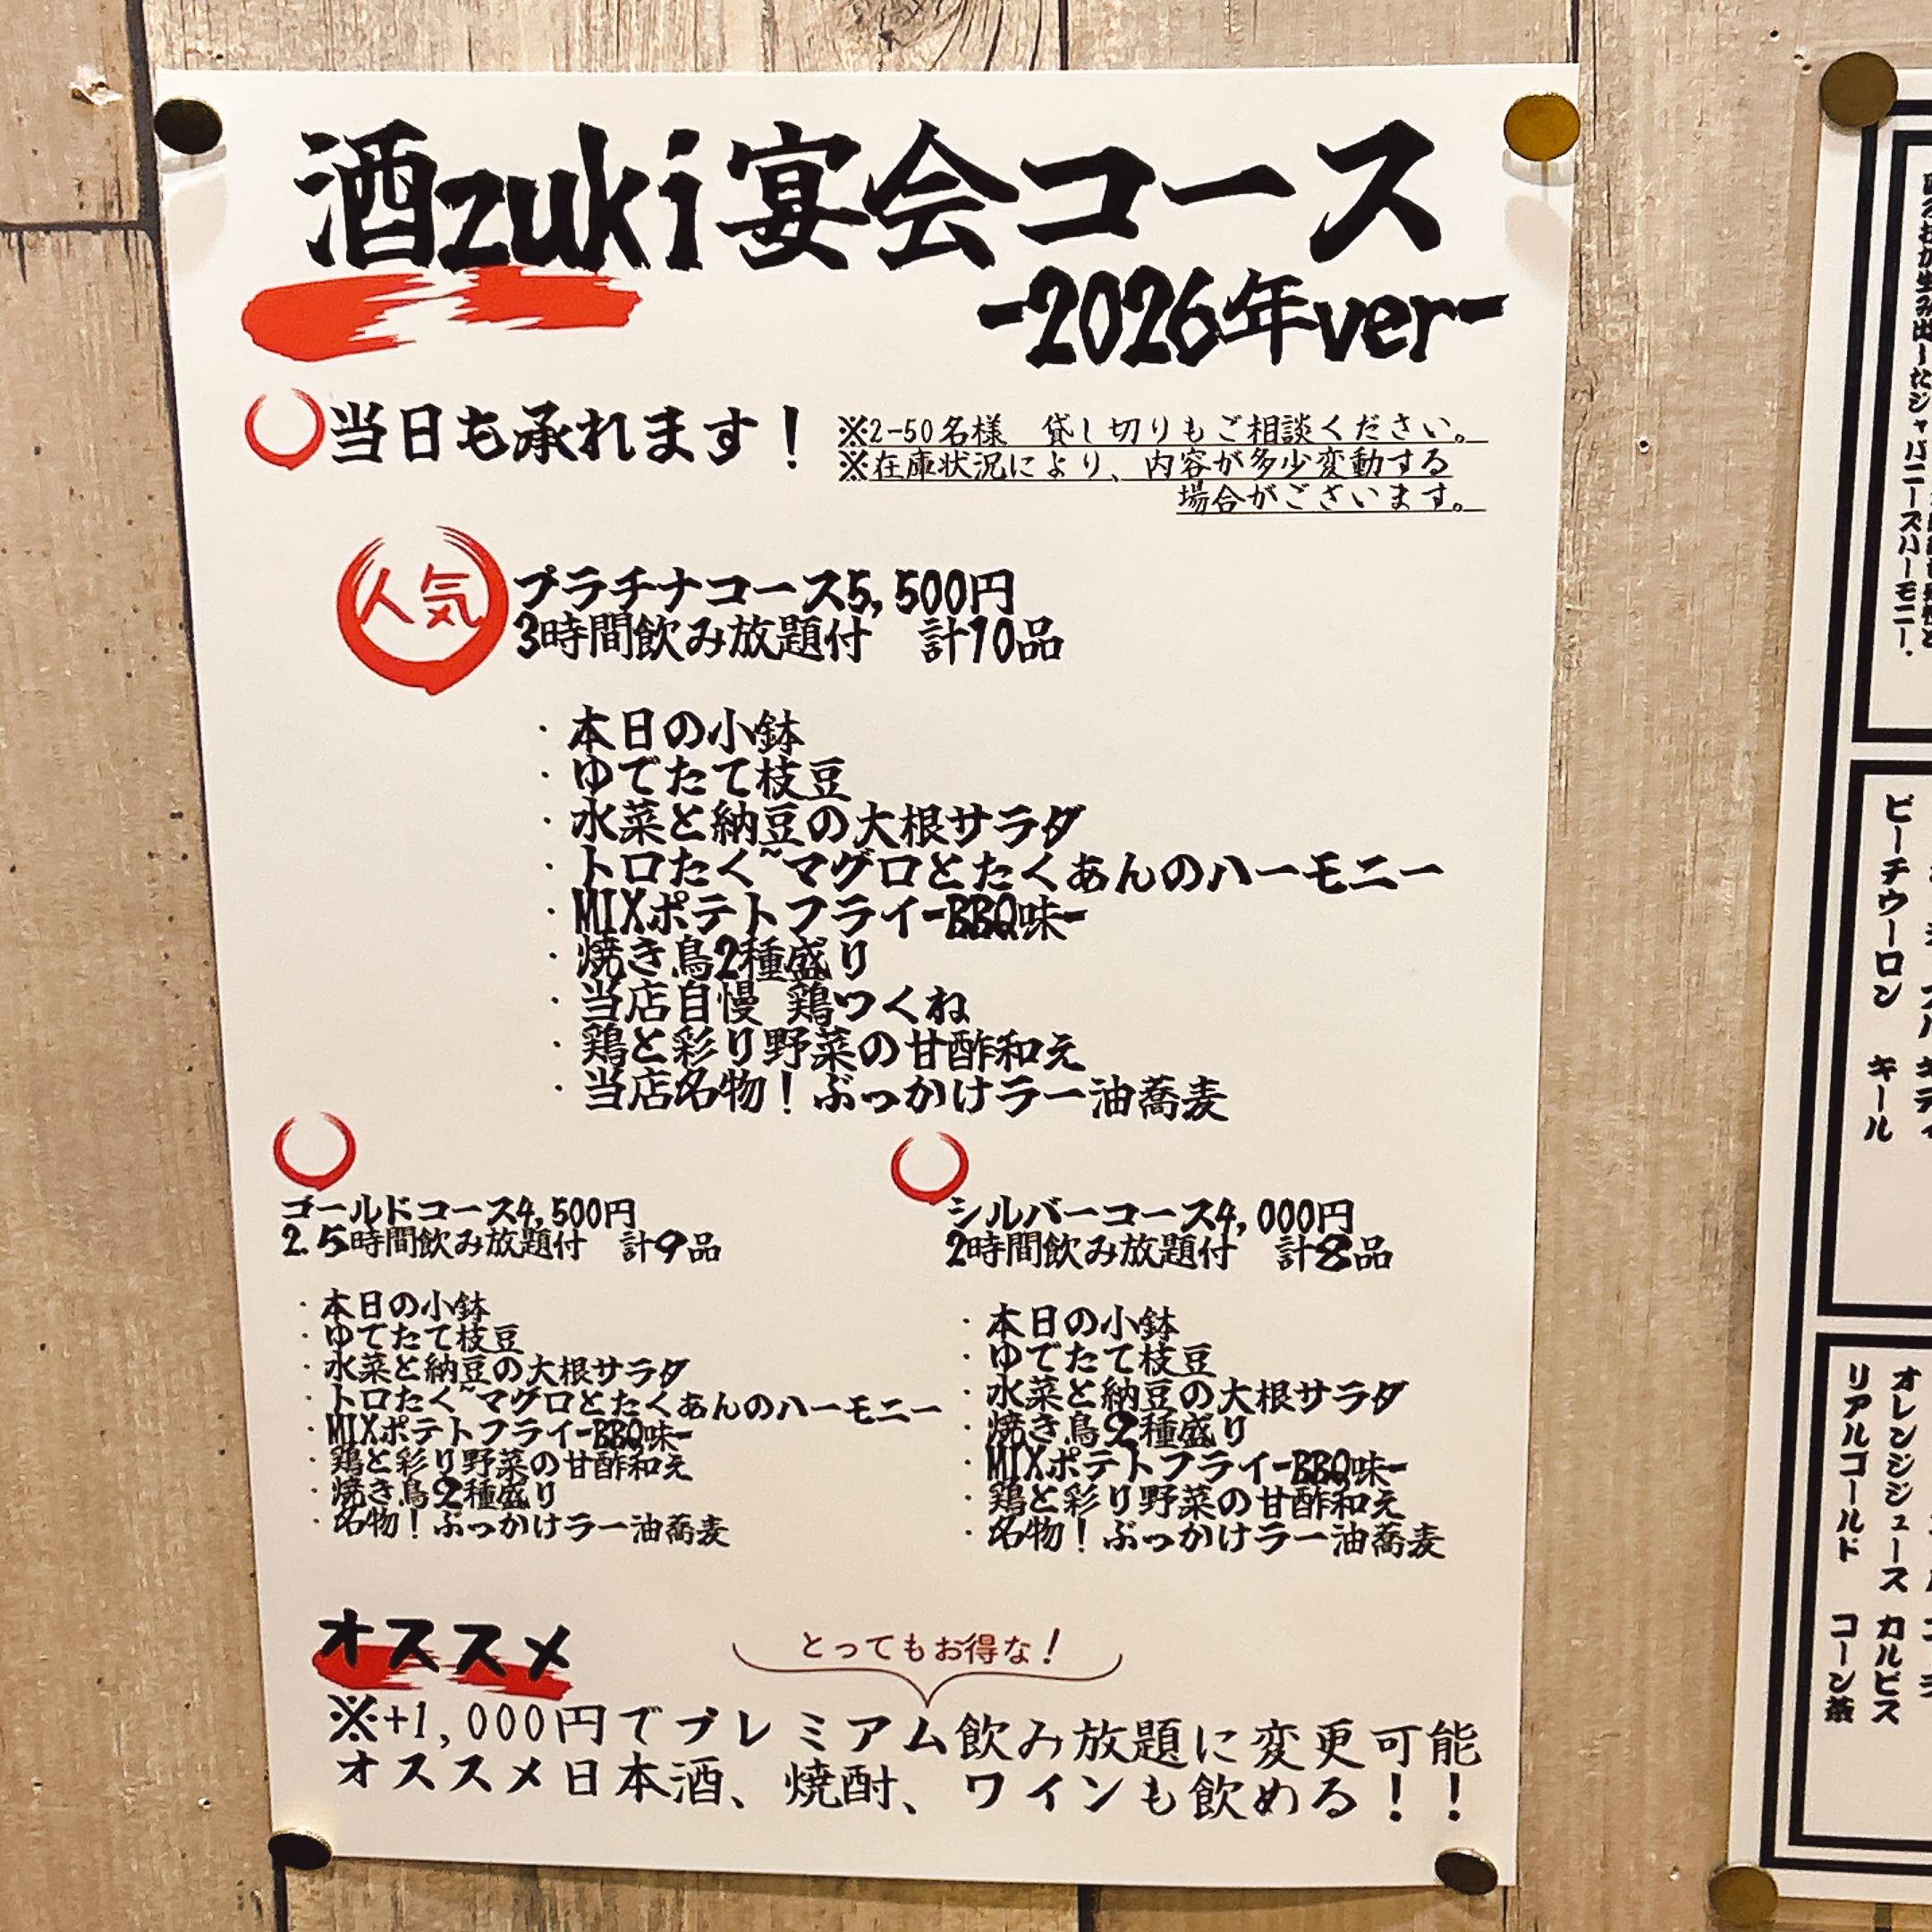 酒zuki宴会コース
-2026年ver-
当日も承れます！
※2-50名様　貸し切りもご相談ください。
※在庫状況により、内容が多少変動する
場合がございます。
人気
プラチナコース5,500円
3時間飲み放題付　計10品
・本日の小鉢
・ゆでたて枝豆
・水菜と納豆の大根サラダ
・トロたく~マグロとたくあんのハーモニー
・MIXポテトフライ-BBQ味-
・焼き鳥2種盛り
・当店自慢 鶏つくね
・鶏と彩り野菜の甘酢和え
・当店名物！ぶっかけラー油蕎麦
ゴールドコース4,500円
2.5時間飲み放題付　計9品
・本日の小鉢
・ゆでたて枝豆
・水菜と納豆の大根サラダ
・トロたく~マグロとたくあんのハーモニー
・MIXポテトフライ-BBQ味-
・鶏と彩り野菜の甘酢和え
・焼き鳥2種盛り
・名物！ぶっかけラー油蕎麦
シルバーコース4,000円
2時間飲み放題付　計8品
・本日の小鉢
・ゆでたて枝豆
・水菜と納豆の大根サラダ
・焼き鳥2種盛り
・MIXポテトフライ-BBQ味-
・鶏と彩り野菜の甘酢和え
・名物！ぶっかけラー油蕎麦
オススメ
とってもお得な！
※+1,000円でプレミアム飲み放題に変更可能
オススメ日本酒、焼酎、ワインも飲める！！
ピーチウーロン　キール
オレンジジュース　カルピス
リアルゴールド　コーン茶